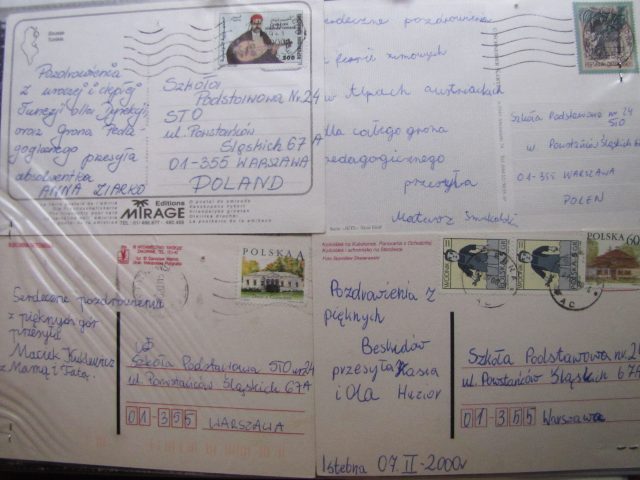 Pozdrowienia
z uroczej i ciepłej
Tunezji dla Dyrekcji
oraz Grona Peda-
gogicznego przesyła
absolwentka
ANNA ZIARKO
500
Szkoła
Podstawowa Nr. 24
STO
ul. Powstańców
Śląskich 67 A
01-355 WARSZAWA
POLAND
Editions
MIRAGE
serdeczne pozdrowienia
z ferii zimowych
w Alpach austriackich
dla całego grona
pedagogicznego
przesyła
Mateusz
Szkoła Podstawowa nr 24
STO
ul. Powstańców Śląskich 67A
01-355 WARSZAWA
POLEN
POLSKA A
Serdeczne pozdrowienia
z pięknych gór
przesyła
Maciek
z Mamą i Tatą.
Szkoła Podstawowa STO nr 24
ul. Powstańców Śląskich 67A
01-355 WARSZAWA
POLSKA 60
Pozdrowienia z
pięknych
Beskidów
przesyła Kasia
i Ola
Szkoła Podstawowa nr 24
ul. Powstańców Śląskich 67A
01-355 Warszawa
Istebna 07. II - 2000r